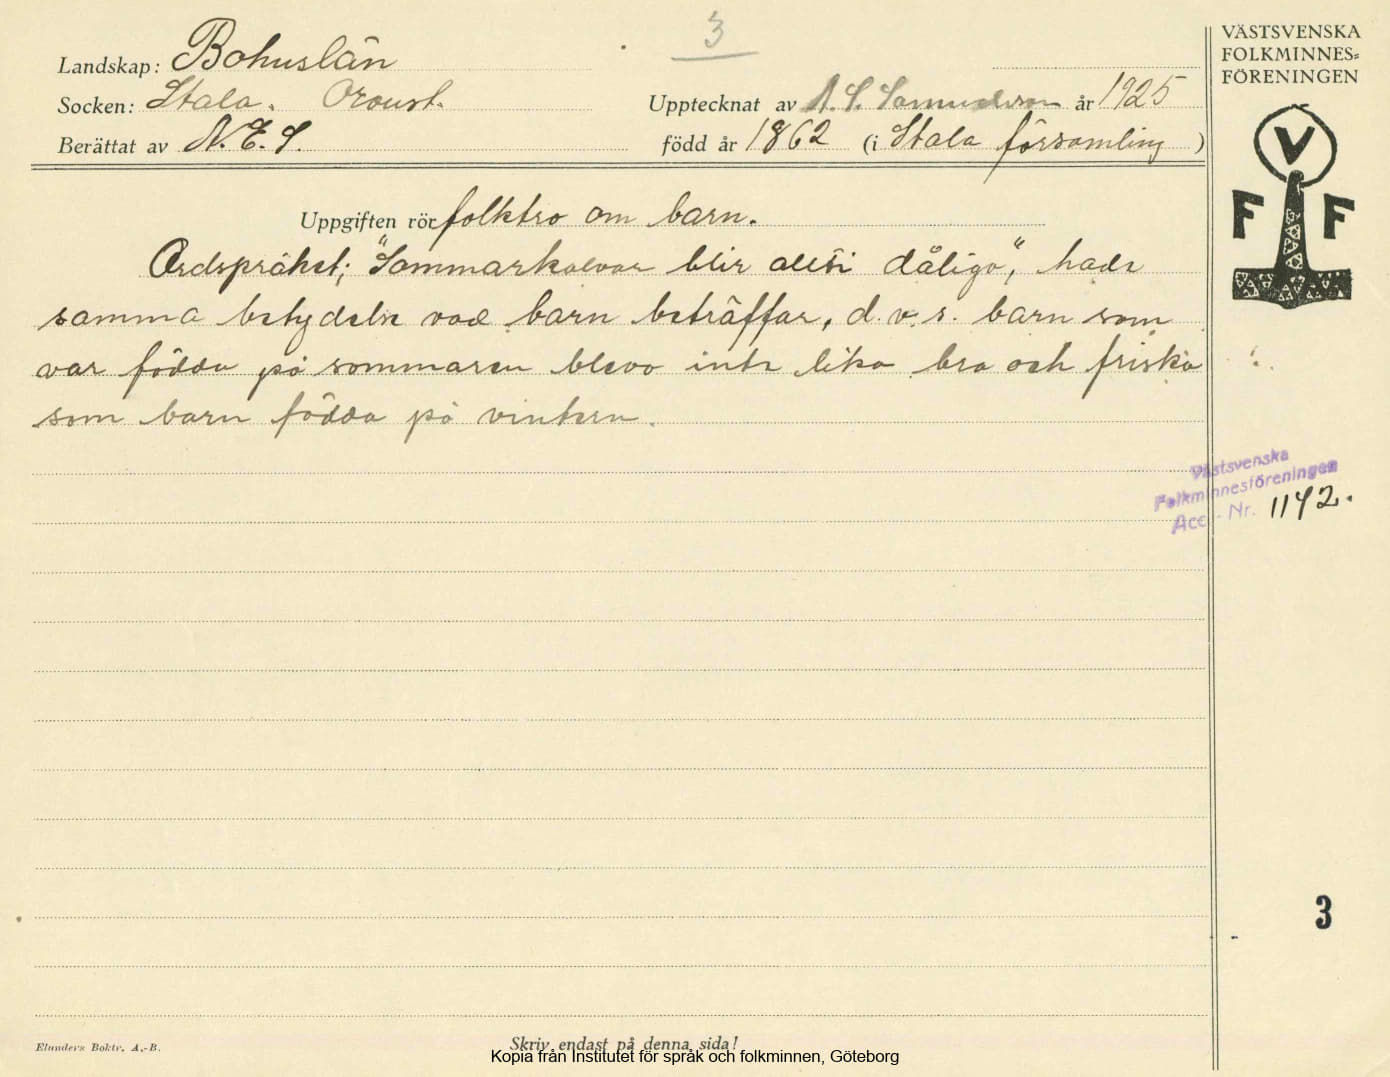 3
VÄSTSVENSKA
FOLKMINNES=
FÖRENINGEN
V
F F
Landskap: Bohuslän
Socken: Stala. Oroust.
Upptecknat av Samuelsson år 1925
Berättat av N.E.S.
född år 1862 (i Stala församling )
Uppgiften rör folktro om barn.
Ordspråket; "Sommarkalvar blir allti dåliga", hade
samma betydelse vad barn beträffar, d.v.s. barn som
var födda på sommaren blevo inte lika bra och friska
som barn födda på vintern.
Västsvenska
Folkminnesföreningen
Acc.-Nr. 1142.
3
Elanders Boktr. A.-B.
Skriv endast på denna sida!
Kopia från Institutet för språk och folkminnen, Göteborg